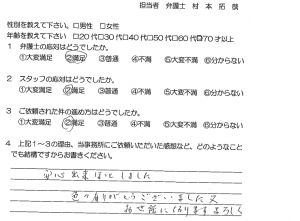 担当者 弁護士 村本拓哉
性別を教えて下さい。□男性 □女性
年齢を教えて下さい □20代□30代□40代□50代□60代□70才以上
1 弁護士の応対はどうでしたか。
①大変満足 ②満足 ③普通 ④不満 ⑤大変不満 ⑥分からない
2 スタッフの応対はどうでしたか。
①大変満足 ②満足 ③普通 ④不満 ⑤大変不満 ⑥分からない
3 ご依頼された件の進め方はどうでしたか。
①大変満足 ②満足 ③普通 ④不満 ⑤大変不満 ⑥分からない
4 上記1～3の理由、当事務所にご依頼いただいた感想など、どのようなこと
でも結構ですからお書きください。
安心出来ほっとしました
色々ありがとうございました又
お世話になりますよろしく